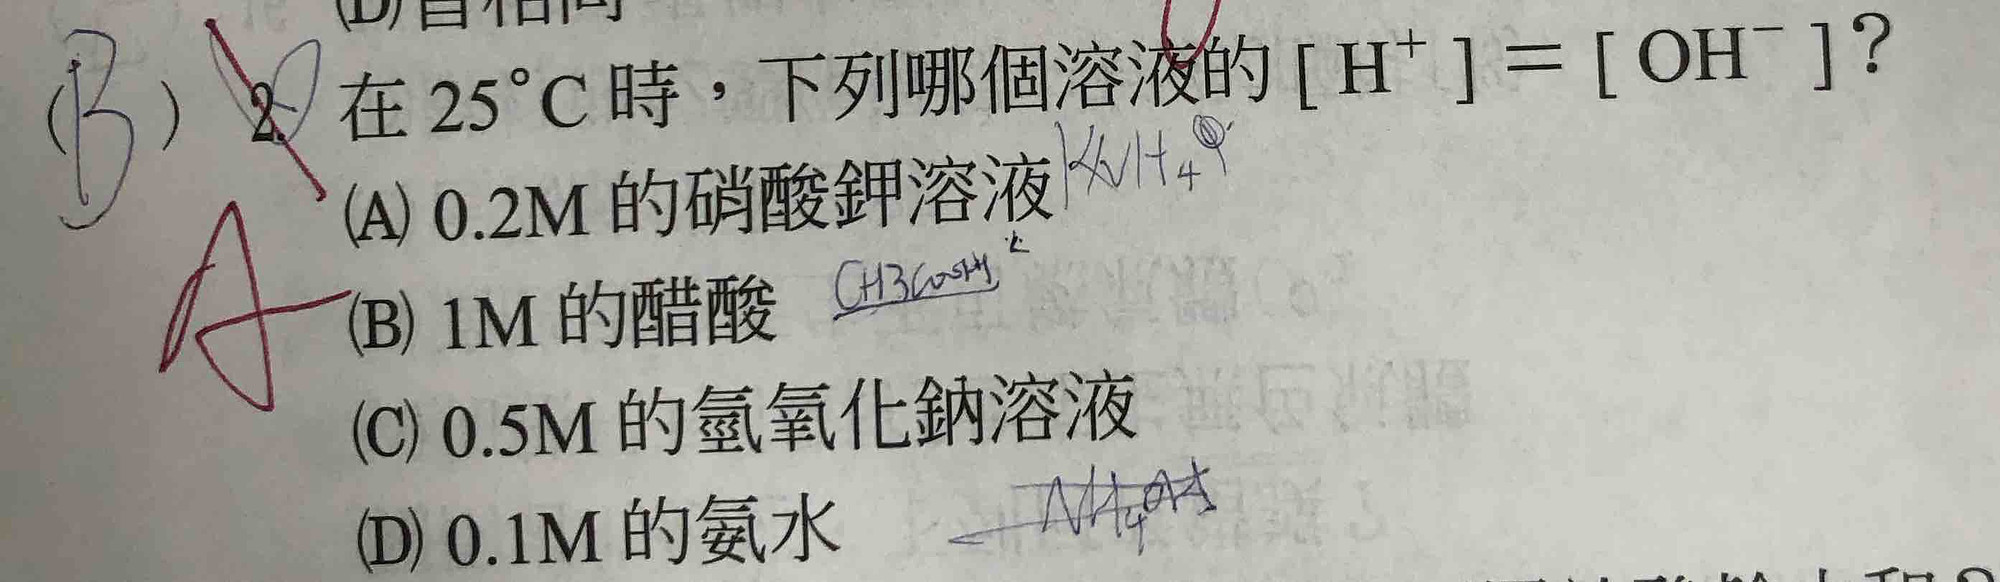 (D)皆相同
(B) 2. 在 25°C 時，下列哪個溶液的 [ H⁺ ] = [ OH⁻ ]？
(A) 0.2M 的硝酸鉀溶液
A
(B) 1M 的醋酸 CH3COOH
(C) 0.5M 的氫氧化鈉溶液
(D) 0.1M 的氨水 NH4OH